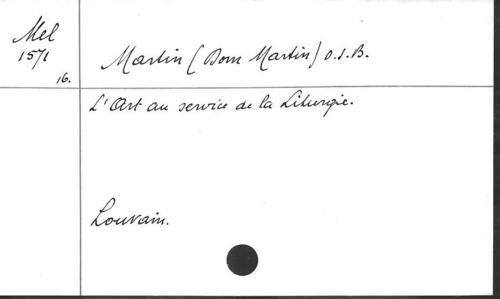 Mel
1571
16.
Martin (Dom Martin) O.S.B.
L'Art au service de la Liturgie.
Louvain.